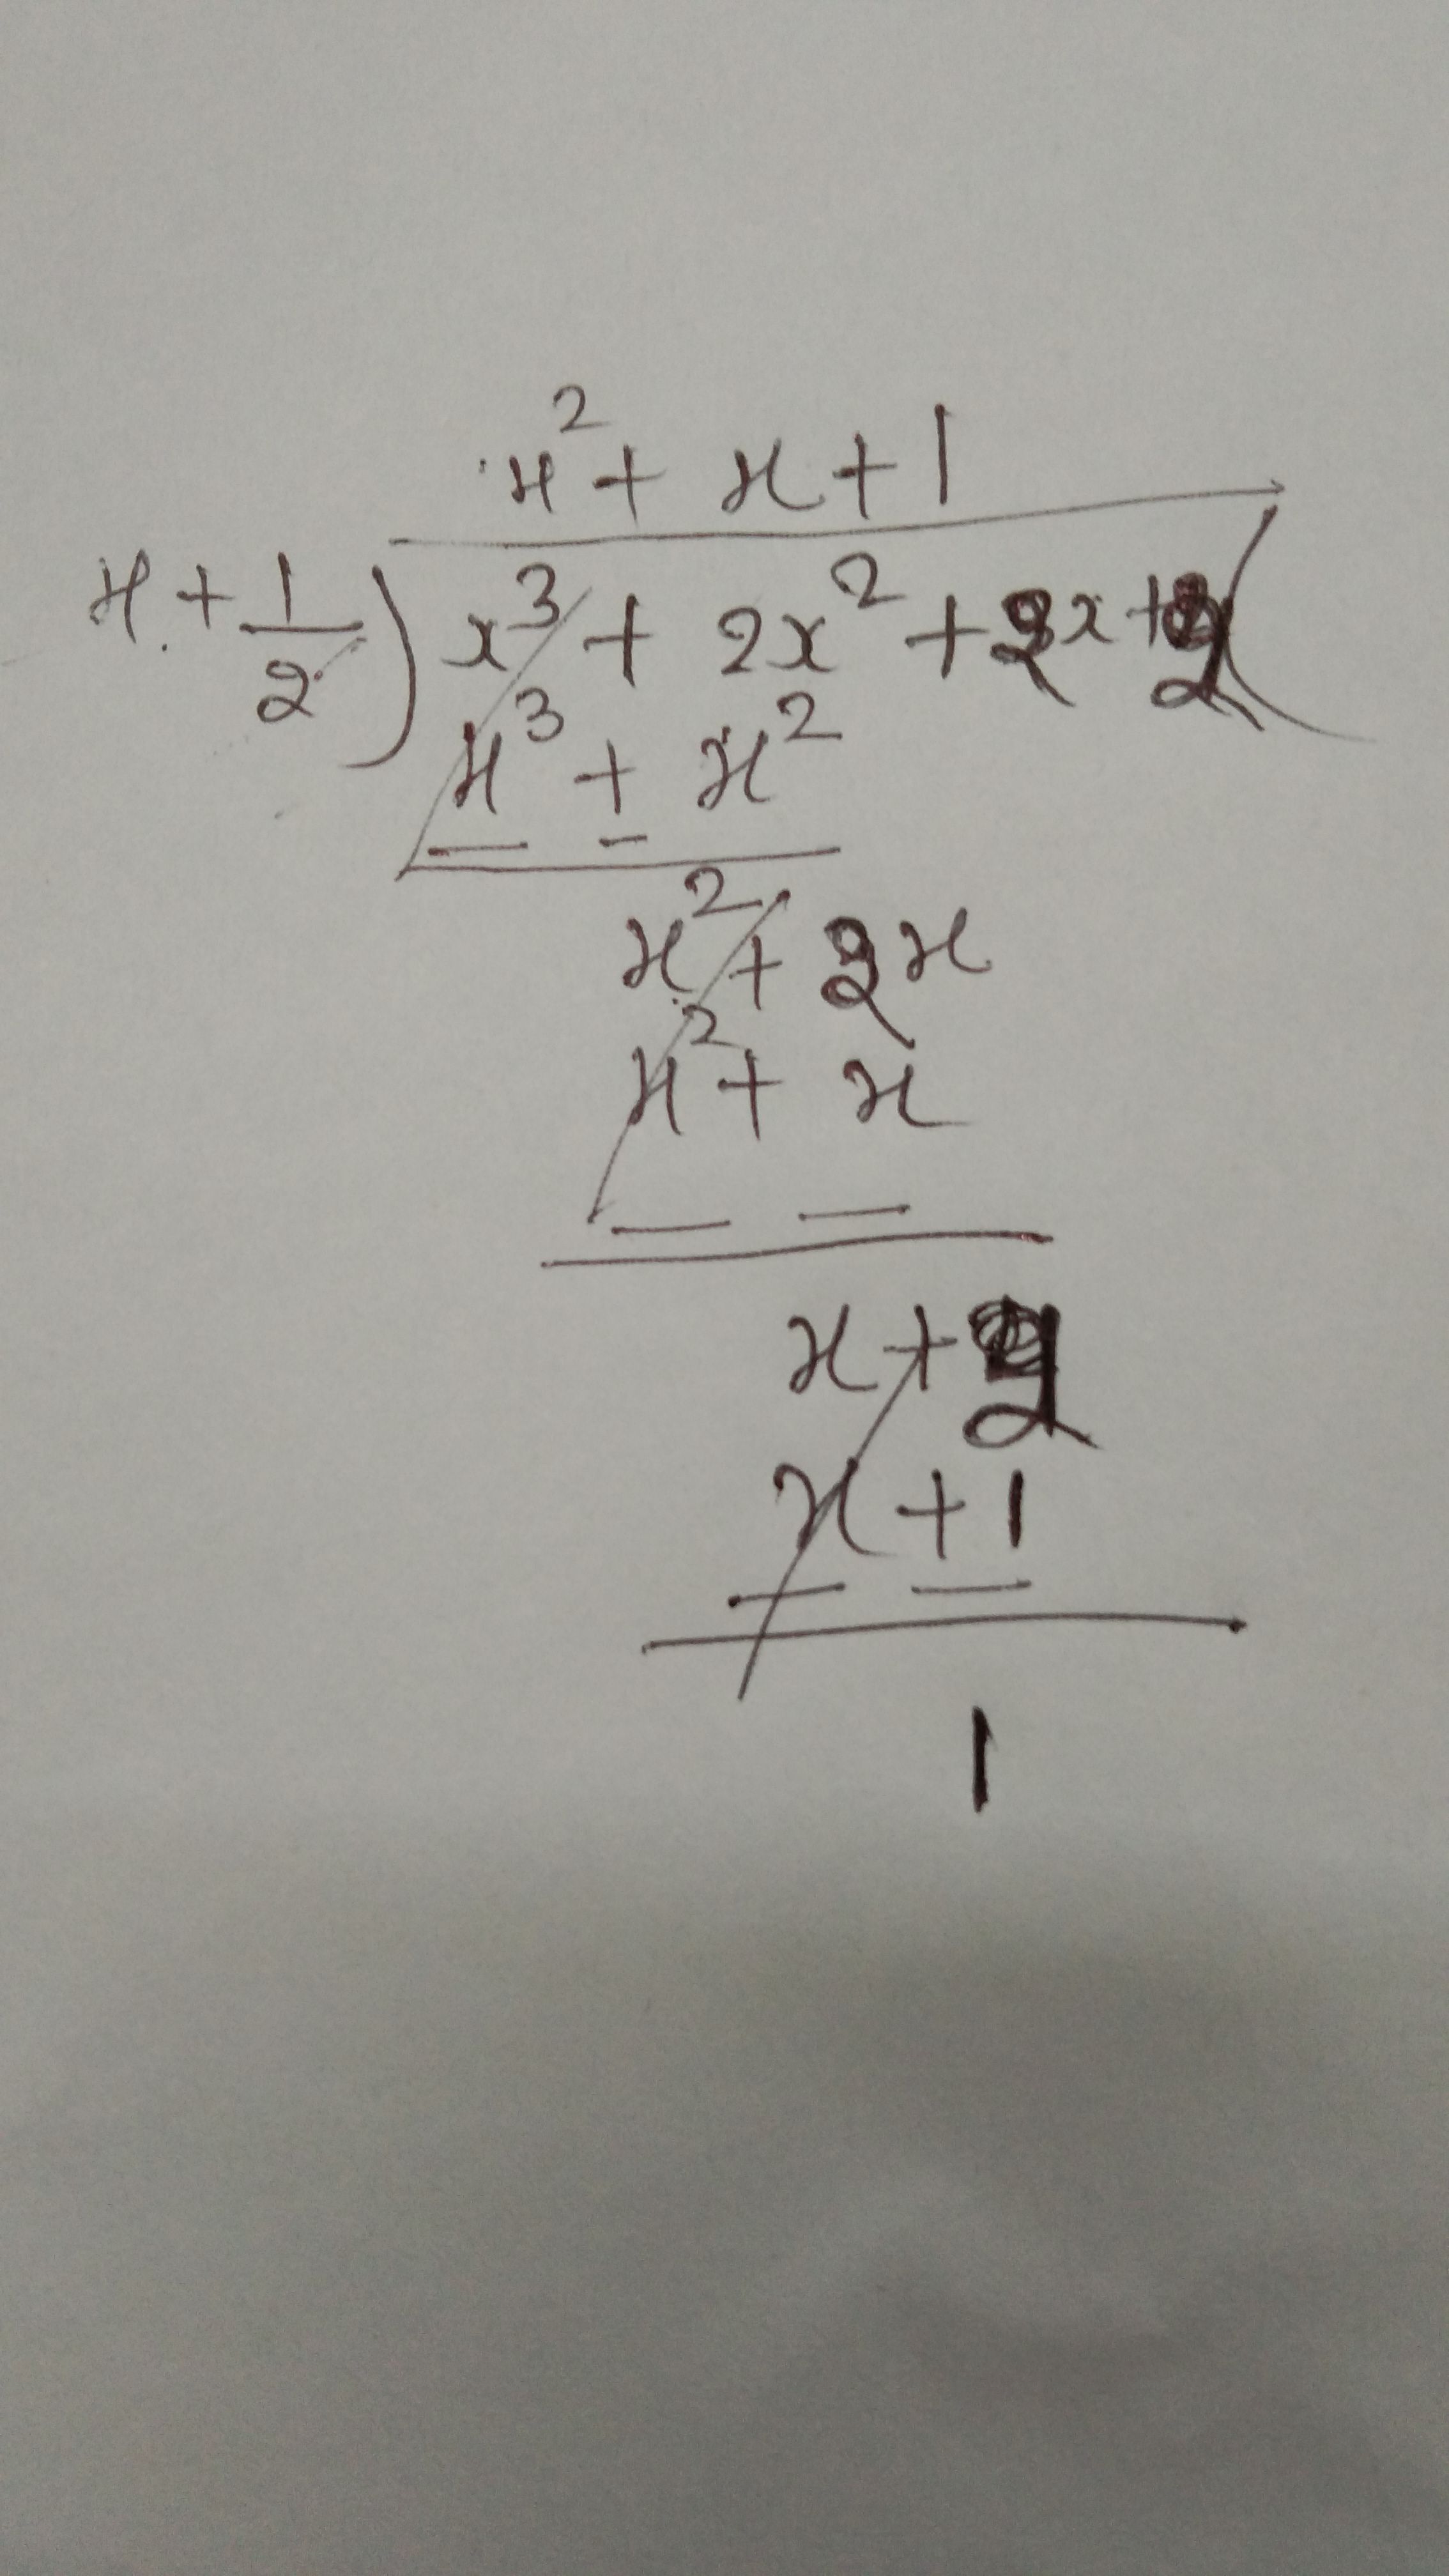 x² + x + 1
x + 1/2 ) x³ + 2x² + 2x + 2 (
x³ + x²
— —
x² + 2x
x² + x
— —
x + 2
x + 1
— —
1